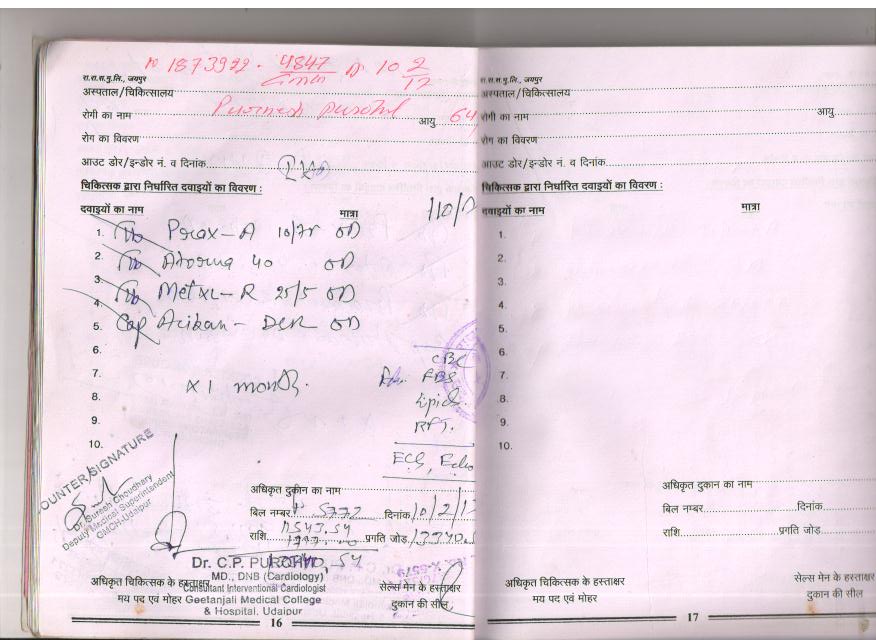 1873922. 4847 10 2/12
रा.रा.स.पु.लि., जयपुर
अस्पताल/चिकित्सालय
रोगी का नाम आयु 64
रोग का विवरण
आउट डोर/इन्डोर नं. व दिनांक
चिकित्सक द्वारा निर्धारित दवाइयों का विवरण :
दवाइयों का नाम मात्रा 110/
1. 10/75 OD
2. 40 OD
3. Met XL-R 25/5 OD
4.
5. Cap OD
6. CBC
7. x 1 month. FBS
8. Lipid
9. RFT.
10.
ECG, Echo
COUNTER SIGNATURE
Dr. Suresh Choudhary
Deputy Medical Superintendent
GMCH-Udaipur
अधिकृत दुकान का नाम
बिल नम्बर 5772 दिनांक 10/2/1
1543.54
राशि प्रगति जोड़
Dr. C.P. PUROHIT
MD., DNB (Cardiology)
Consultant Interventional Cardiologist
Geetanjali Medical College
& Hospital, Udaipur
अधिकृत चिकित्सक के हस्ताक्षर सेल्स मेन के हस्ताक्षर
मय पद एवं मोहर दुकान की सील
16
रा.रा.स.पु.लि., जयपुर
अस्पताल/चिकित्सालय
रोगी का नाम आयु
रोग का विवरण
आउट डोर/इन्डोर नं. व दिनांक
चिकित्सक द्वारा निर्धारित दवाइयों का विवरण :
दवाइयों का नाम मात्रा
1.
2.
3.
4.
5.
6.
7.
8.
9.
10.
अधिकृत दुकान का नाम
बिल नम्बर दिनांक
राशि प्रगति जोड़
अधिकृत चिकित्सक के हस्ताक्षर सेल्स मेन के हस्ताक्षर
मय पद एवं मोहर दुकान की सील
17